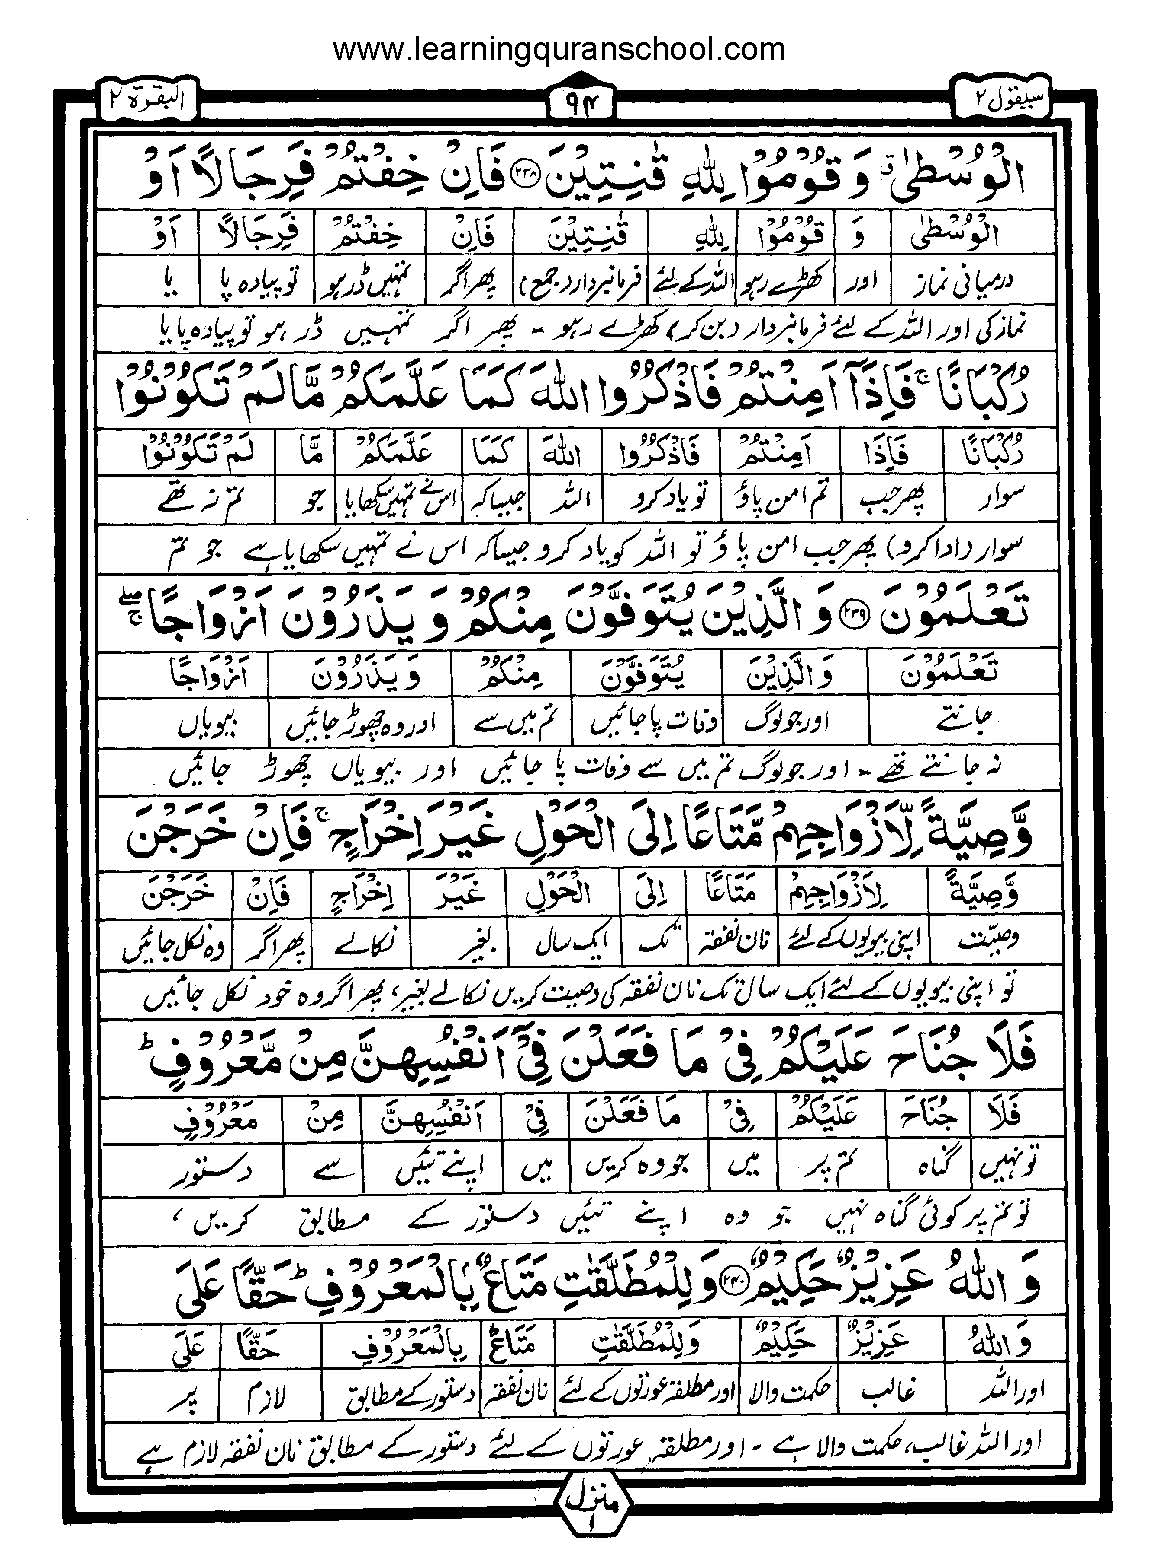 www.learningquranschool.com
سیقول ۲ ۹۴ البقرۃ ۲
الْوُسْطٰى ۗ وَ قُوْمُوْا لِلّٰهِ قٰنِتِيْنَ ۝۲۳۸ فَاِنْ خِفْتُمْ فَرِجَالًا اَوْ
الْوُسْطٰى وَ قُوْمُوْا لِلّٰهِ قٰنِتِيْنَ فَاِنْ خِفْتُمْ فَرِجَالًا اَوْ
درمیانی نماز اور کھڑے رہو اللہ کے لئے فرمانبردار (جمع) پھر اگر تمہیں ڈر ہو تو پیادہ پا یا
نماز کی اور اللہ کے لئے فرمانبردار (بن کر) کھڑے رہو - پھر اگر تمہیں ڈر ہو تو پیادہ پا یا
رُكْبَانًا ۚ فَاِذَآ اَمِنْتُمْ فَاذْكُرُوا اللّٰهَ كَمَا عَلَّمَكُمْ مَّا لَمْ تَكُوْنُوْا
رُكْبَانًا فَاِذَا اَمِنْتُمْ فَاذْكُرُوا اللّٰهَ كَمَا عَلَّمَكُمْ مَّا لَمْ تَكُوْنُوْا
سوار پھر جب تم امن پاؤ تو یاد کرو اللہ جیسا کہ اس نے تمہیں سکھایا جو تم نہ تھے
سوار (ادا کرو) پھر جب امن پاؤ تو اللہ کو یاد کرو جیسا کہ اس نے تمہیں سکھایا ہے جو تم
تَعْلَمُوْنَ ۝۲۳۹ وَ الَّذِيْنَ يُتَوَفَّوْنَ مِنْكُمْ وَ يَذَرُوْنَ اَزْوَاجًا ۖۚ
تَعْلَمُوْنَ وَ الَّذِيْنَ يُتَوَفَّوْنَ مِنْكُمْ وَ يَذَرُوْنَ اَزْوَاجًا
جانتے اور جو لوگ وفات پا جائیں تم میں سے اور وہ چھوڑ جائیں بیویاں
نہ جانتے تھے - اور جو لوگ تم میں سے وفات پا جائیں اور بیویاں چھوڑ جائیں
وَّصِيَّةً لِّاَزْوَاجِهِمْ مَّتَاعًا اِلَى الْحَوْلِ غَيْرَ اِخْرَاجٍ ۚ فَاِنْ خَرَجْنَ
وَّصِيَّةً لِاَزْوَاجِهِمْ مَتَاعًا اِلَى الْحَوْلِ غَيْرَ اِخْرَاجٍ فَاِنْ خَرَجْنَ
وصیت اپنی بیویوں کے لئے نان نفقہ تک ایک سال بغیر نکالے پھر اگر وہ نکل جائیں
تو اپنی بیویوں کے لئے ایک سال تک نان نفقہ کی وصیت کریں نکالے بغیر، پھر اگر وہ خود نکل جائیں
فَلَا جُنَاحَ عَلَيْكُمْ فِيْ مَا فَعَلْنَ فِيْٓ اَنْفُسِهِنَّ مِنْ مَّعْرُوْفٍ ؕ
فَلَا جُنَاحَ عَلَيْكُمْ فِيْ مَا فَعَلْنَ فِيْ اَنْفُسِهِنَّ مِنْ مَعْرُوْفٍ
تو نہیں گناہ تم پر میں جو وہ کریں میں اپنے تئیں سے دستور
تو تم پر کوئی گناہ نہیں جو وہ اپنے تئیں دستور کے مطابق کریں،
وَ اللّٰهُ عَزِيْزٌ حَكِيْمٌ ۝۲۴۰ وَ لِلْمُطَلَّقٰتِ مَتَاعٌۢ بِالْمَعْرُوْفِ ؕ حَقًّا عَلَى
وَ اللّٰهُ عَزِيْزٌ حَكِيْمٌ وَ لِلْمُطَلَّقٰتِ مَتَاعٌ بِالْمَعْرُوْفِ حَقًّا عَلَى
اور اللہ غالب حکمت والا اور مطلقہ عورتوں کے لئے نان نفقہ دستور کے مطابق لازم پر
اور اللہ غالب، حکمت والا ہے - اور مطلقہ عورتوں کے لئے دستور کے مطابق نان نفقہ لازم ہے
منزل ۱